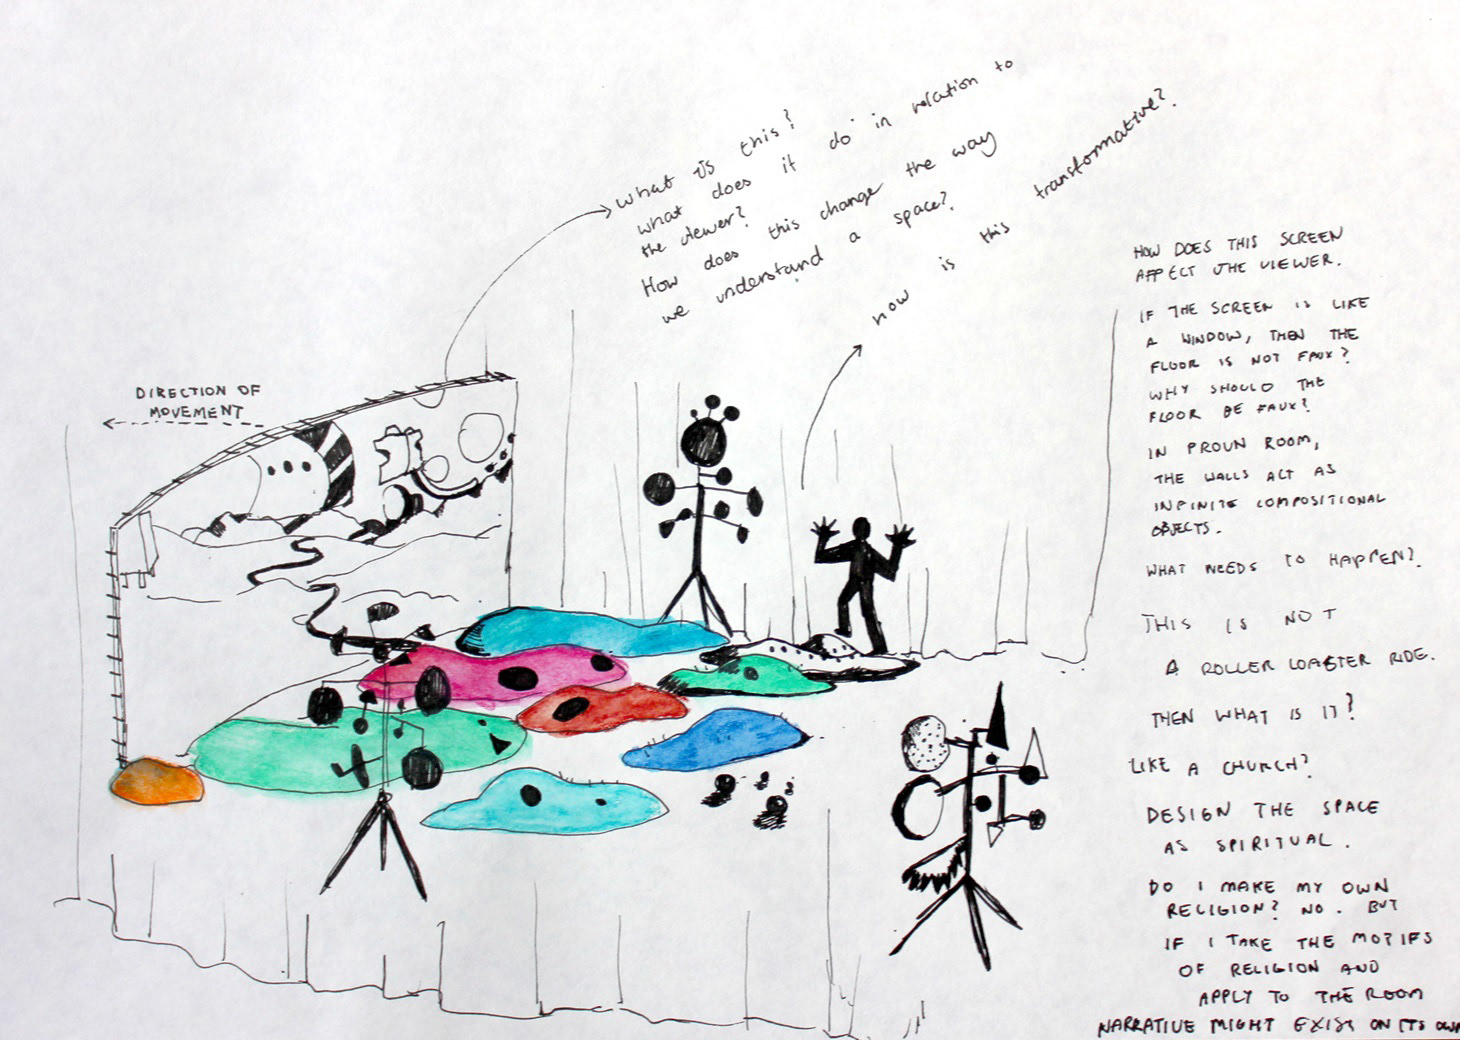 what is this?
what does it do in relation to
the viewer?
How does this change the way
we understand a space?
how is this transformative?
DIRECTION OF
MOVEMENT
HOW DOES THIS SCREEN
AFFECT THE VIEWER.
IF THE SCREEN IS LIKE
A WINDOW, THEN THE
FLOOR IS NOT FAUX?
WHY SHOULD THE
FLOOR BE FAUX?
IN PROUN ROOM,
THE WALLS ACT AS
INFINITE COMPOSITIONAL
OBJECTS.
WHAT NEEDS TO HAPPEN?
THIS IS NOT
A ROLLER COASTER RIDE.
THEN WHAT IS IT?
LIKE A CHURCH?
DESIGN THE SPACE
AS SPIRITUAL.
DO I MAKE MY OWN
RELIGION? NO. BUT
IF I TAKE THE MOTIFS
OF RELIGION AND
APPLY TO THE ROOM
NARRATIVE MIGHT EXIST ON ITS OWN